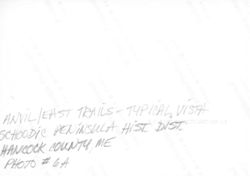 ANVIL/EAST TRAILS - TYPICAL VISTA
SCHOODIC PENINSULA HIST. DIST.
HANCOCK COUNTY, ME
PHOTO # 6A